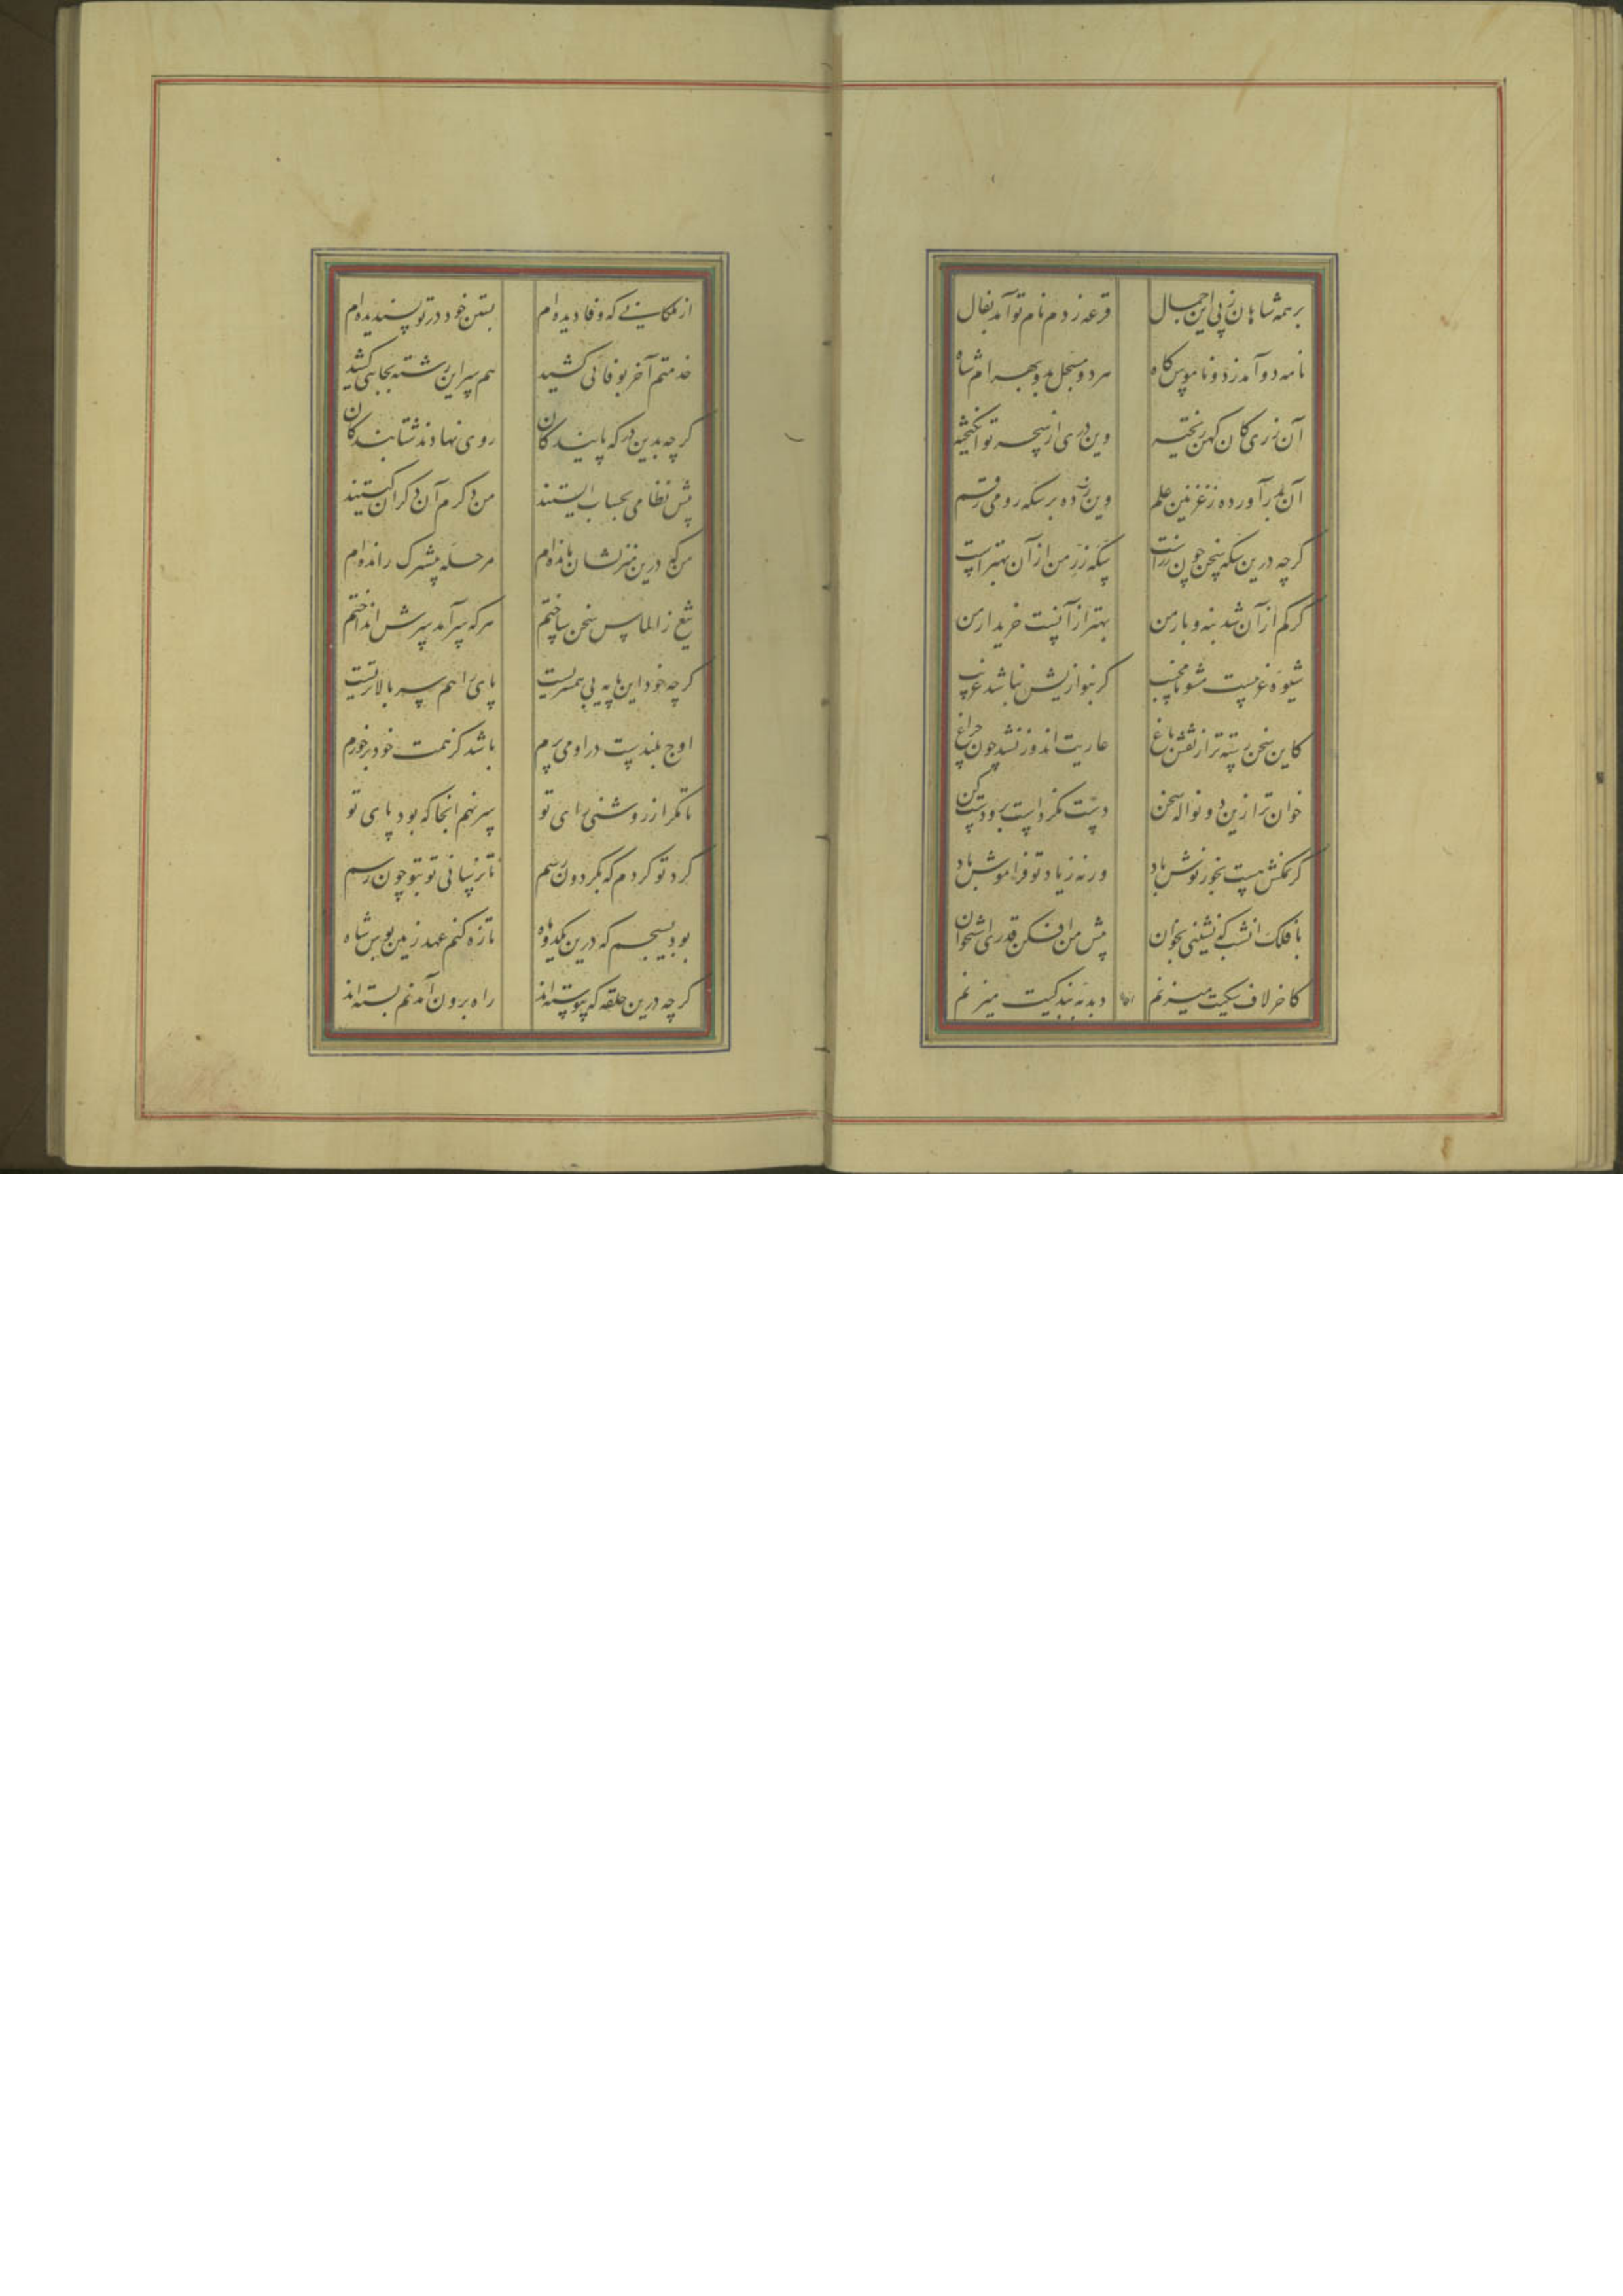 بر همه شاهان ز پی این جمال
قرعه زدم نام تو آمد بفال
نامه دو آمد ز دو ناموس گاه
هر دو مسجل بدو بهرام شاه
آن زری از کان کهن ریخته
وین دری از بحر نو انگیخته
آن بدر آورده ز غزنین علم
وین زده بر سکه رومی رقم
گرچه درین سکه سخن چون زرست
سکه زر من از آن بهترست
گر کم از آن شد بنه و بار من
بهتر از آنست خریدار من
شیوه غریبست مشو نامجیب
گر بنوازیش نباشد غریب
کاین سخن رسته‌تر از نقش باغ
عاریت اندوز نشد چون چراغ
خوان ترا زین دو نواله سخن
دست نکردست برو دست کن
گر نمکش هست بخور نوش باد
ورنه ز یاد تو فراموش باد
با فلک آنشب که نشینی بخوان
پیش من افکن قدری استخوان
کاخر لاف سگیت میزنم
دبدبه بندگیت میزنم
از ملکانی که وفا دیده‌ام
بستن خود در تو پسندیده‌ام
خدمتم آخر بوفائی کشید
هم سر این رشته بجائی کشد
گرچه بدین درگه پایندگان
روی نهادند شتابندگان
پیش نظامی بحساب ایستند
من دگرم آن دگران کیستند
من که درین منزلشان مانده‌ام
مرحله پیشترک رانده‌ام
تیغ ز الماس سخن ساختم
هر که پس آمد سرش انداختم
گرچه خود این پایه بی همسریست
پای مرا هم سر بالاتریست
اوج بلندست در او می پرم
باشد کز همت خود برخورم
تا مگر از روشنی رای تو
سر نهم آنجا که بود پای تو
گرد تو گردم که بگردون رسم
تا نرسانی تو بتو چون رسم
بود بسیجم که درین یکدو ماه
تازه کنم عهد زمین بوس شاه
گرچه درین حلقه که پیوسته‌اند
راه برون آمدنم بسته‌اند